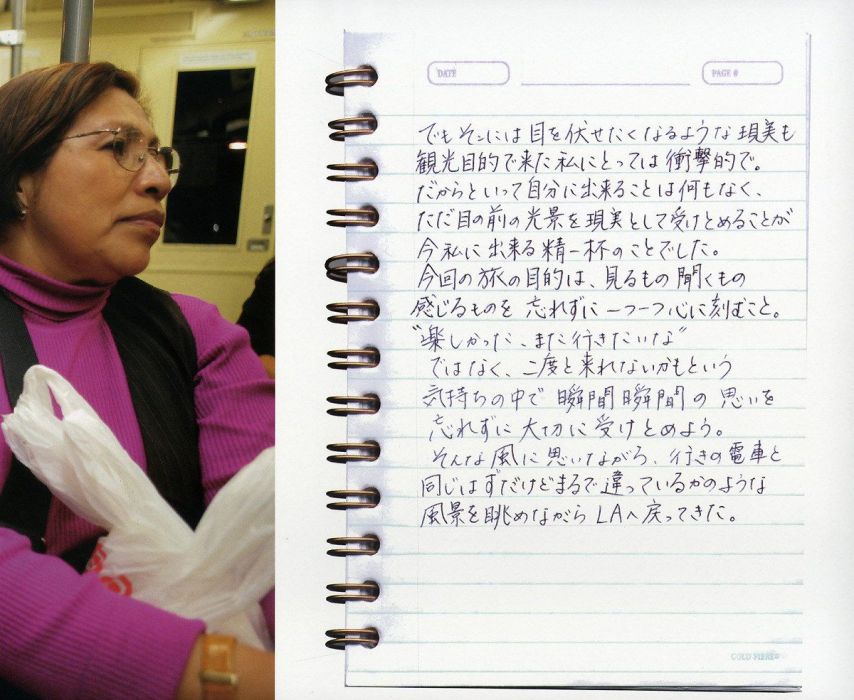 DATE
PAGE #
でもそこには目を伏せたくなるような現実も
観光目的で来た私にとっては衝撃的で。
だからといって自分に出来ることは何もなく、
ただ目の前の光景を現実として受けとめることが
今私に出来る精一杯のことでした。
今回の旅の目的は、見るもの聞くもの
感じるものを忘れずに一つ一つ心に刻むこと。
"楽しかった、また行きたいな"
ではなく、二度と来れないかもという
気持ちの中で瞬間瞬間の思いを
忘れずに大切に受けとめよう。
そんな風に思いながら、行きの電車と
同じはずだけどまるで違っているかのような
風景を眺めながらLAへ戻ってきた。